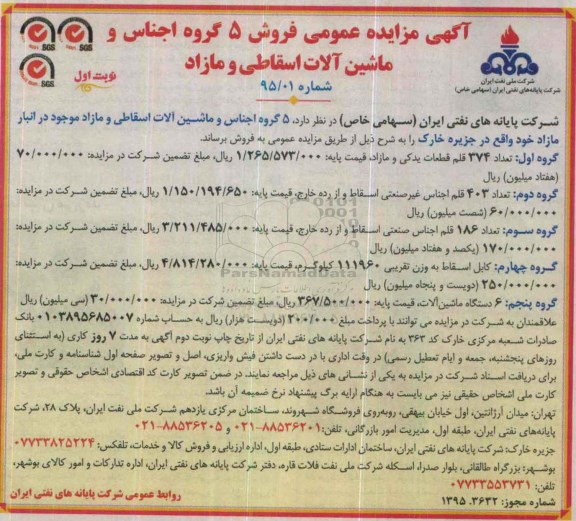 آگهی مزایده عمومی فروش ۵ گروه اجناس و
ماشین آلات اسقاطی و مازاد
شماره ۹۵/۰۱
نوبت اول
SGS
SGS
SGS
شرکت ملی نفت ایران
شرکت پایانه‌های نفتی ایران (سهامی خاص)
شرکت پایانه های نفتی ایران (سهامی خاص) در نظر دارد، ۵ گروه اجناس و ماشین آلات اسقاطی و مازاد موجود در انبار
مازاد خود واقع در جزیره خارک را به شرح ذیل از طریق مزایده عمومی به فروش برساند.
گروه اول: تعداد ۳۷۴ قلم قطعات یدکی و مازاد، قیمت پایه: ۱/۲۶۵/۵۷۳/۰۰۰ ریال، مبلغ تضمین شرکت در مزایده: ۷۰/۰۰۰/۰۰۰
(هفتاد میلیون) ریال
گروه دوم: تعداد ۴۰۳ قلم اجناس غیرصنعتی اسقاط و از رده خارج، قیمت پایه: ۱/۱۵۰/۱۹۴/۶۵۰ ریال، مبلغ تضمین شرکت در مزایده:
۶۰/۰۰۰/۰۰۰ (شصت میلیون) ریال
گروه سوم: تعداد ۱۸۶ قلم اجناس صنعتی اسقاط و از رده خارج، قیمت پایه: ۳/۲۱۱/۴۸۵/۰۰۰ ریال، مبلغ تضمین شرکت در مزایده:
۱۷۰/۰۰۰/۰۰۰ (یکصد و هفتاد میلیون) ریال
گروه چهارم: کابل اسقاط به وزن تقریبی ۱۱۱۹۶۰ کیلوگرم، قیمت پایه: ۴/۸۱۴/۲۸۰/۰۰۰ ریال، مبلغ تضمین شرکت در مزایده:
۲۵۰/۰۰۰/۰۰۰ (دویست و پنجاه میلیون) ریال
گروه پنجم: ۶ دستگاه ماشین‌آلات، قیمت پایه: ۳۶۷/۵۰۰/۰۰۰ ریال، مبلغ تضمین شرکت در مزایده: ۳۰/۰۰۰/۰۰۰ (سی میلیون) ریال
علاقمندان به شرکت در مزایده می توانند با پرداخت مبلغ ۲۰۰/۰۰۰ (دویست هزار) ریال به حساب شماره ۰۱۰۳۸۹۵۶۸۵۰۰۷ بانک
صادرات شعبه مرکزی خارک کد ۳۶۳ به نام شرکت پایانه های نفتی ایران از تاریخ چاپ نوبت دوم آگهی به مدت ۷ روز کاری (به استثنای
روزهای پنجشنبه، جمعه و ایام تعطیل رسمی) در وقت اداری با در دست داشتن فیش واریزی، اصل و تصویر صفحه اول شناسنامه و کارت ملی،
برای دریافت اسناد شرکت در مزایده به یکی از نشانی های ذیل مراجعه نمایند. در ضمن تصویر کارت کد اقتصادی اشخاص حقوقی و تصویر
کارت ملی اشخاص حقیقی نیز می بایست به هنگام ارایه برگ پیشنهاد نرخ ضمیمه آن باشد.
تهران: میدان آرژانتین، اول خیابان بیهقی، روبه‌روی فروشگاه شهروند، ساختمان مرکزی یازدهم شرکت ملی نفت ایران، پلاک ۲۸، شرکت
پایانه‌های نفتی ایران، طبقه اول، مدیریت امور بازرگانی، تلفن: ۸۸۵۳۶۲۰۱-۰۲۱ و ۸۸۵۳۶۲۰۵-۰۲۱
جزیره خارک: شرکت پایانه های نفتی ایران، ساختمان ادارات ستادی، طبقه اول، اداره ارزیابی و فروش کالا و خدمات، تلفکس: ۰۷۷۳۳۸۲۵۲۲۴
بوشهر: بزرگراه طالقانی، بلوار صدرا، اسکله شرکت ملی نفت فلات قاره، دفتر شرکت پایانه های نفتی ایران، اداره تدارکات و امور کالای بوشهر،
تلفن: ۰۷۷۳۳۵۵۳۷۳۱
شماره مجوز: ۱۳۹۵.۳۶۳۲
روابط عمومی شرکت پایانه های نفتی ایران
ParsNamadData